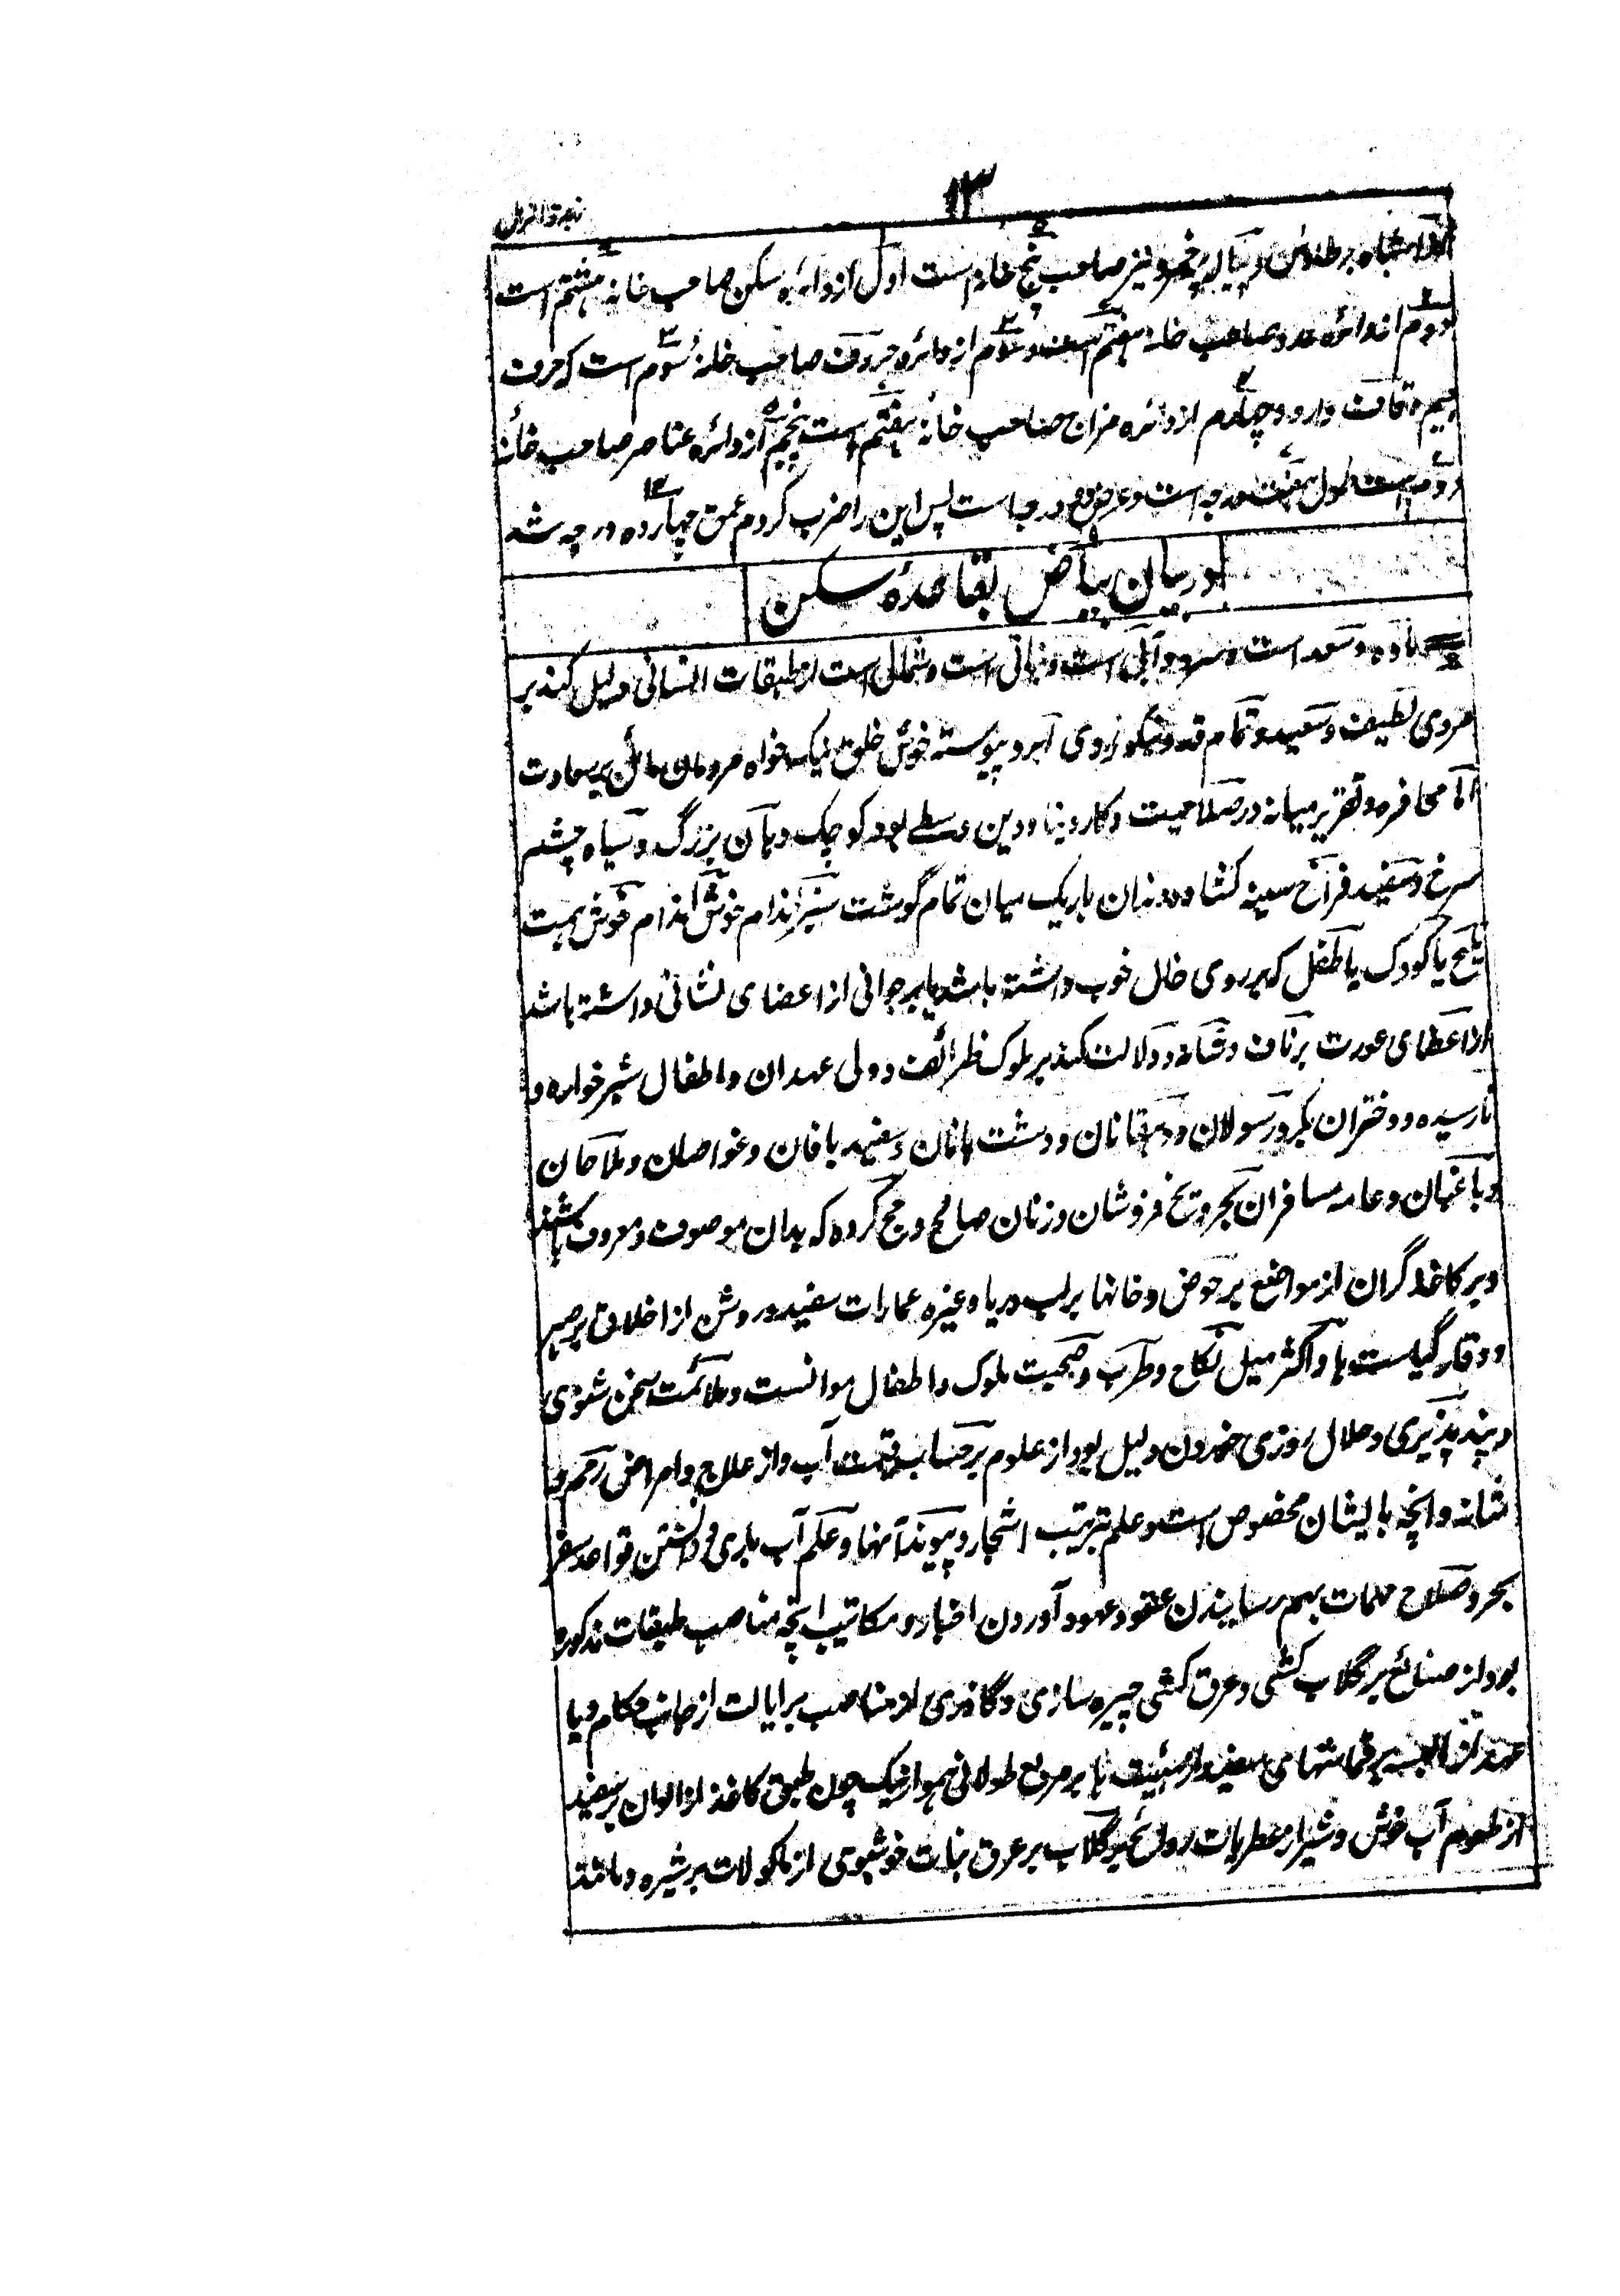 ۱۳
زبدة الرمل
از اشباه بر طاؤس و پیاله پرخمر و نیز صاحب پنج خانه است اول از دائره سکن صاحب خانه هشتم است
دوم از دائره عدد صاحب خانه هفتم است و سوم از دائره حروف صاحب خانهٔ سوم است که حرف
جیم و قاف دارد و چهارم از دائره مزاج صاحب خانهٔ هفتم است پنجم از دائره عناصر صاحب خانهٔ
دوم است طول هفت درجه است و عرض دو درجه است پس این را ضرب کردم عمق چهارده درجه شد
در بیان بیاض بقاعدهٔ سکن
ماده و سعد است و سرد و آبی است و نباتی است و شمالی است از طبقات انسانی دلیل کند بر
مردی لطیف و سعید و تمام قد و نیکو روی ابرو پیوسته خوش خلق نیک خواه مردمان مائل بر سعادت
اما محافره و تقریر میانه در صلاحیت و کار دنیا و دین وسطے بود کوچک دهان بزرگ و سیاه چشم
سرخ و سفید فراخ سینه کشاده دندان باریک میان تمام گوشت سبز اندام خوش اندام خوش هیت
یا کودک یا طفل که بر روی خال خوب داشته باشد یا بر جوانی از اعضای نشانی داشته باشد
از اعطای عورت بر ناف و مثانه و دلالت کند بر ملوک ظرائف و ولی عهدان و اطفال شیر خواره و
نارسیده و دختران بکر و رسولان و دهقانان و دشت بانان و سفید بافان و غواصان و ملاحان
و باغبان و عامه مسافران بحر و یخ فروشان و زنان صالح و جمع گروه که بدان موصوف و معروف باشند
و بر کاغذ گران از مواضع بر حوض و خانها بر لب دریا و غیره عمارات سفید و روشن از اخلاق بر صبر
و وقار گیاست ها و اکثر میل نکاح و طرب و صحبت ملوک و اطفال موانست و ملائمت سخن شنوی
و پند پذیری و حلال روزی خوردن دلیل بود از علوم بر حساب قسمت آب و از علاج و امراض رحم و
مثانه و انچه بایشان مخصوص است و علم تربیت اشجار و پیوند آنها و علم آب یاری و دانستن قواعد سفر
بحر و صلاح مهمات بهم رسایندن عقود عهود آوردن اخبار و مکاتیب انچه مناصب طبقات مذکوره
بود از صنائع بر گلاب کشی و عرق کشی چیره سازی و گازری از مناصب بر ایالت از جانب حکام و یا
عهد از البسه بر قماشهای سفید از هیئت ها بر مربع طولانی هموار نیک چون طبق کاغذ از الوان بر سفید
از طعوم آب خوش و شیر از عطریات روائح بر گلاب بر عرق نبات خوشبوی از ماکولات بر شیره و مانند